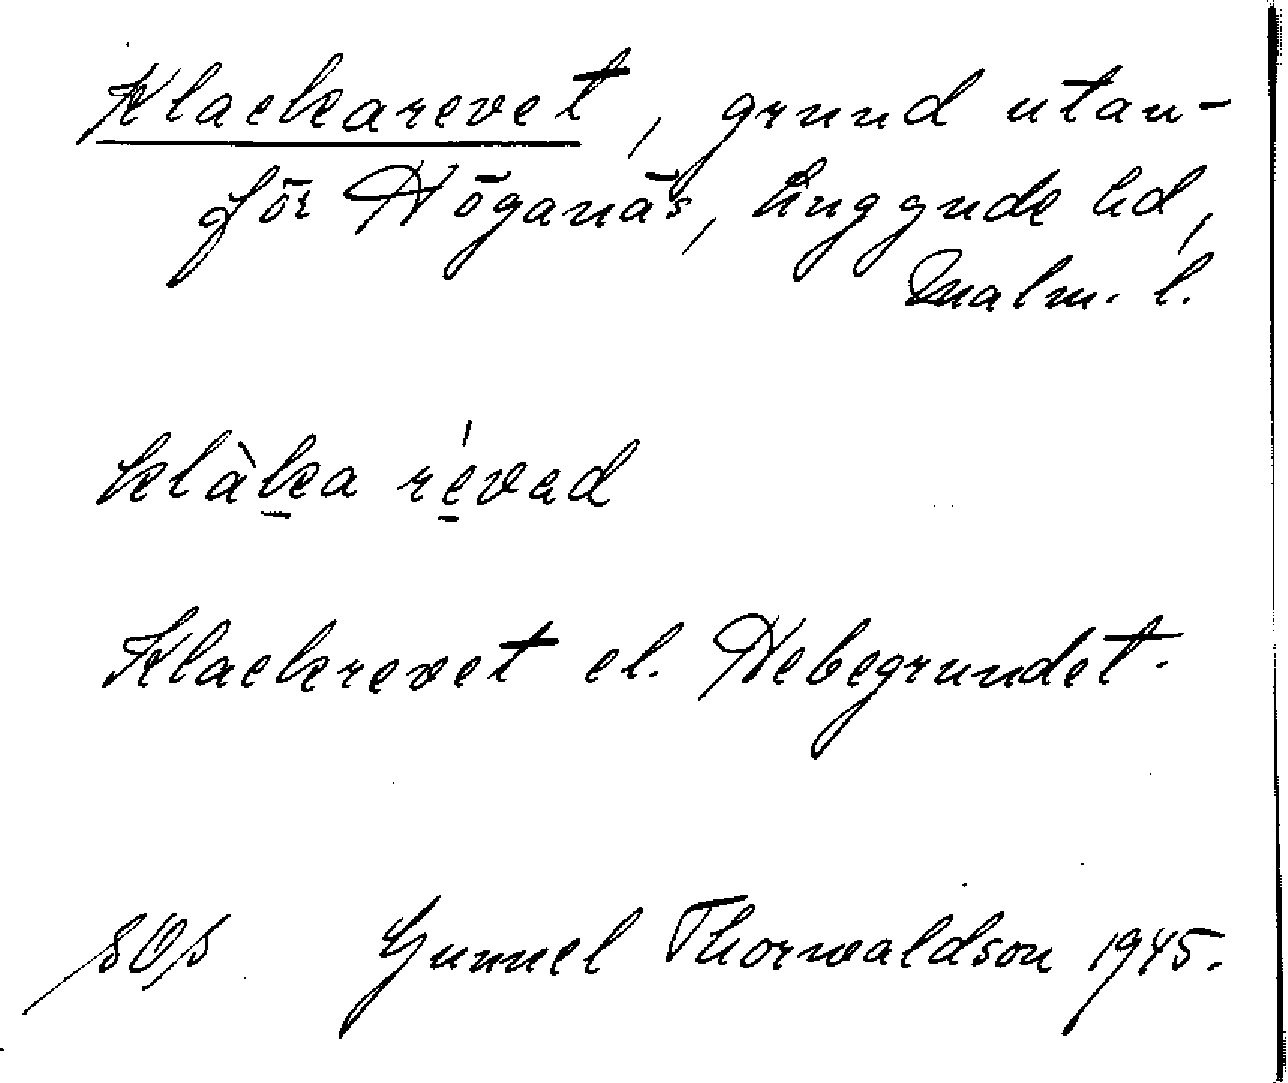 Klackarevet, grund utan-
för Höganäs, Luggude hd,
Malm. l.
klàka révad
Klackrevet el. Hebegrundet.
SOS Gunnel Thorwaldson 1945.